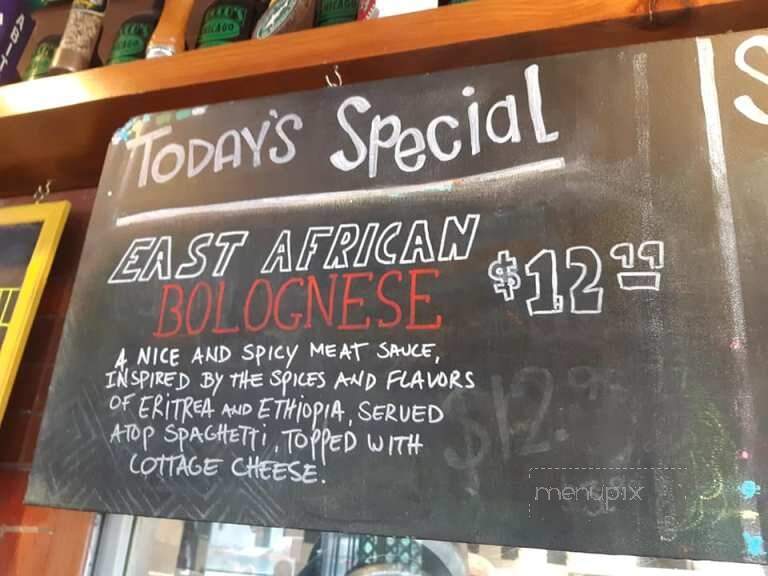 CHICAGO
TODAY'S Special
EAST AFRICAN
BOLOGNESE
$12 99
A NICE AND SPICY MEAT SAUCE,
INSPIRED BY THE SPICES AND FLAVORS
OF ERITREA AND ETHIOPIA, SERVED
ATOP SPAGHETTI, TOPPED WITH
COTTAGE CHEESE.
$12.
menupix